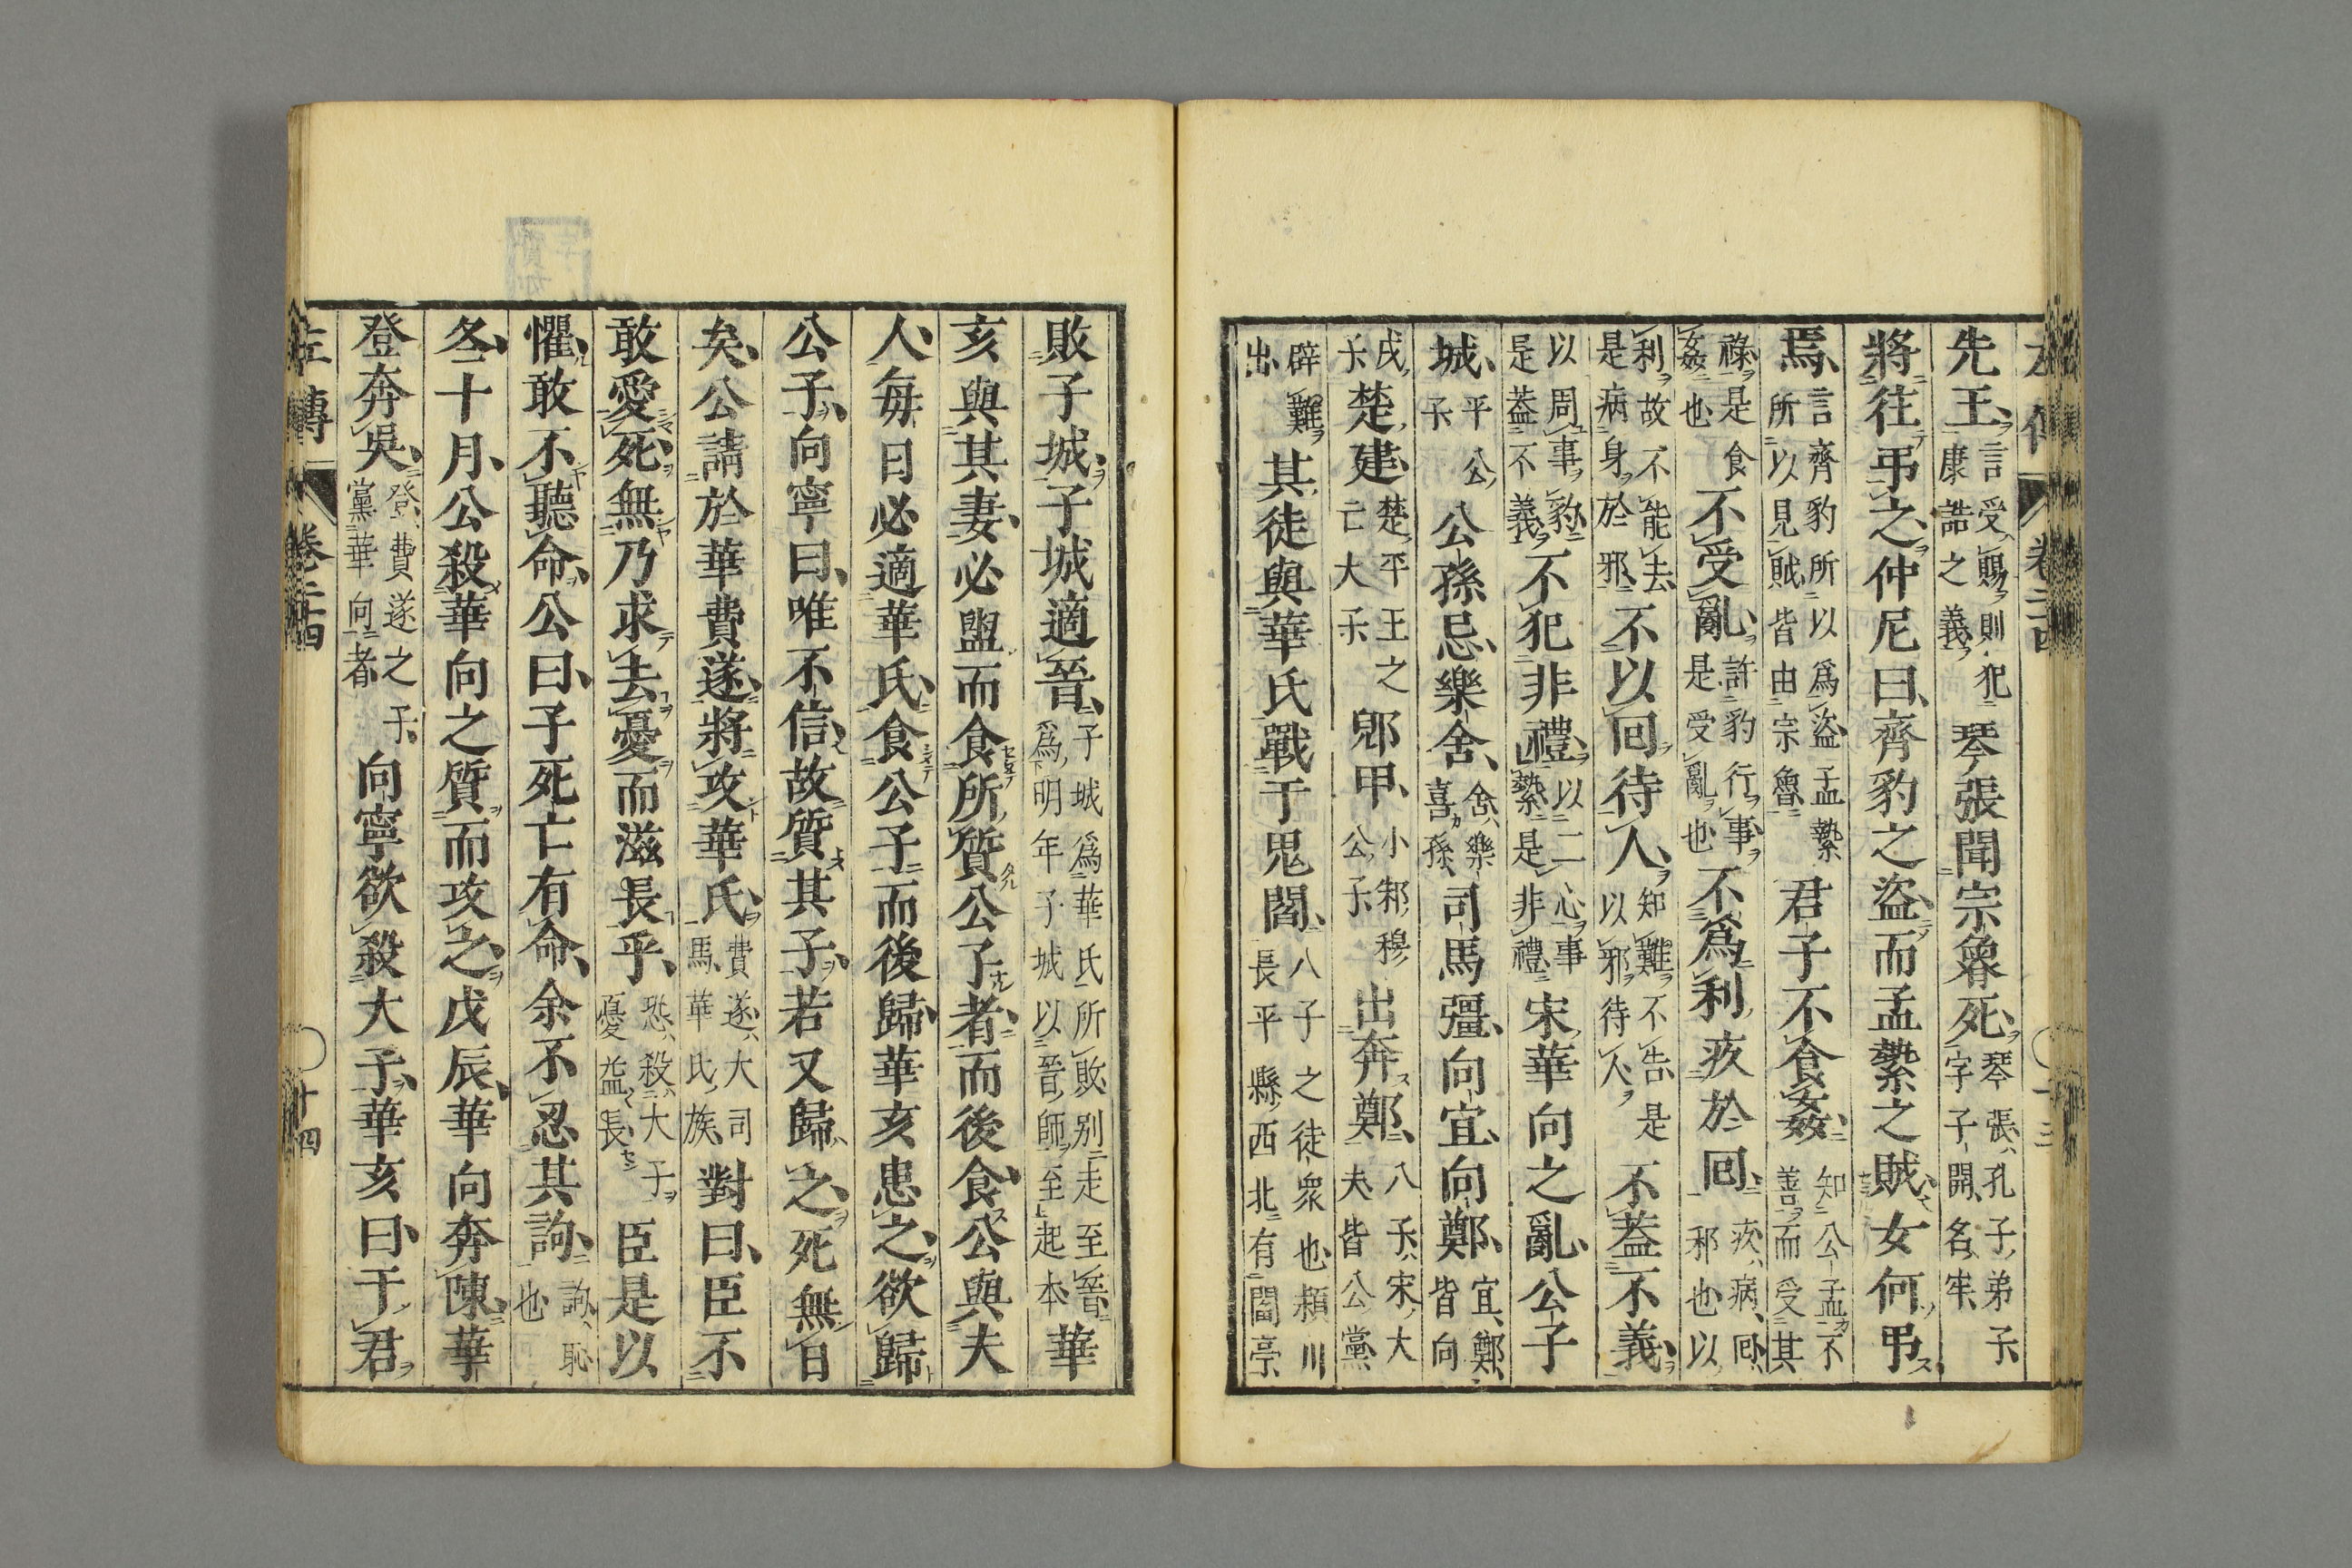 先王言受賜則犯康誥之義琴張聞宗魯死琴張孔子弟子字子開名牢
將往弔之仲尼曰齊豹之盜而孟縶之賊女何弔
焉言齊豹所以爲盜孟縶所以見賊皆由宗魯君子不食姦知公孟不善而受其
祿是食姦也不受亂許豹行事是受亂也不爲利疚於回疚病回邪也以
利故不能去是病身於邪不以回待人知難不告是以邪待人不蓋不義
以周事豹是蓋不義不犯非禮以二心事縶是非禮宋華向之亂公子
城平公子公孫忌樂舍舍樂喜孫司馬彊向宜向鄭宜鄭皆向
戌子楚建楚平王之亡大子郳甲小邾穆公子出奔鄭八子宋大夫皆公黨
辟難出其徒與華氏戰于鬼閻八子之徒衆也潁川長平縣西北有閻亭
敗子城子城適晉子城爲華氏所敗別走至晉爲明年子城以晉師至起本華
亥與其妻必盥而食所質公子者而後食公與夫
人每日必適華氏食公子而後歸華亥患之欲歸
公子向寧曰唯不信故質其子若又歸之死無日
矣公請於華費遂將攻華氏費遂大司馬華氏族對曰臣不
敢愛死無乃求去憂而滋長乎恐殺大子憂益長臣是以
懼敢不聽命公曰子死亡有命余不忍其訽訽恥也
冬十月公殺華向之質而攻之戊辰華向奔陳華
登奔吳登費遂之子黨華向者向寧欲殺大子華亥曰干君
左傳 卷二十四 十四